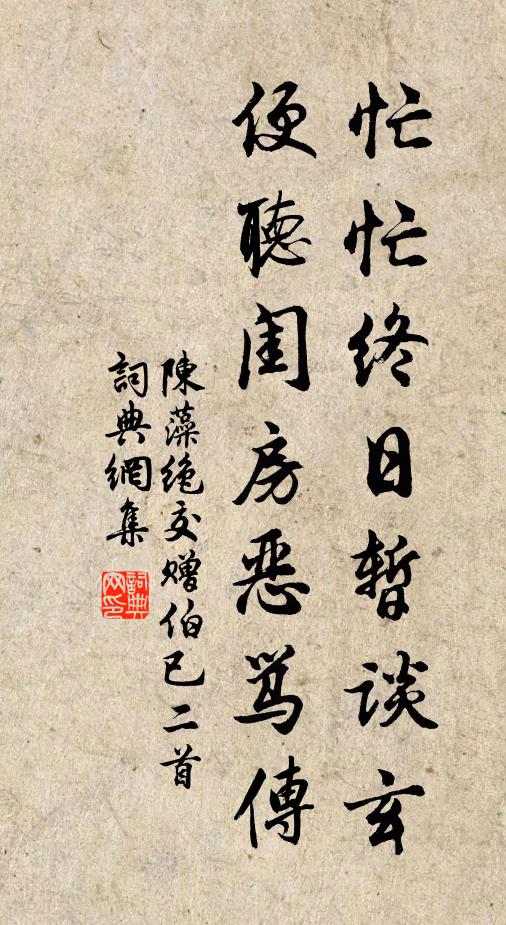 忙忙終日暫談玄
便聽閨房惡骂傳
陳藻绝交赠伯已二首
詞典網集
詞典網印